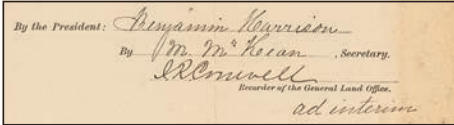 By the President: Benjamin Harrison
By M. McKean, Secretary.
I.R. Conwell
Recorder of the General Land Office.
ad interim